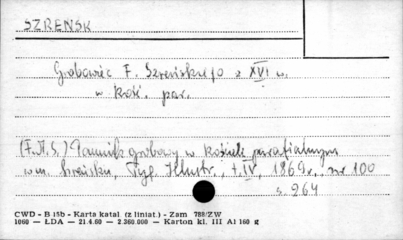 SZREŃSK
Grobowiec F. Szreńskiego z XVI w.
w kość. par.
(F.M.S.) Pomnik grobowy w kościele parafialnym
w m. Sreńsku, Tyg. Illustr., t. IV, 1869 r., nr 100
s. 264
CWD - B 15b - Karta katal. (z liniat.) - Zam 788/ZW
1060 — ŁDA — 21.4.60 — 2.360.000 — Karton kl. III A1 160 g